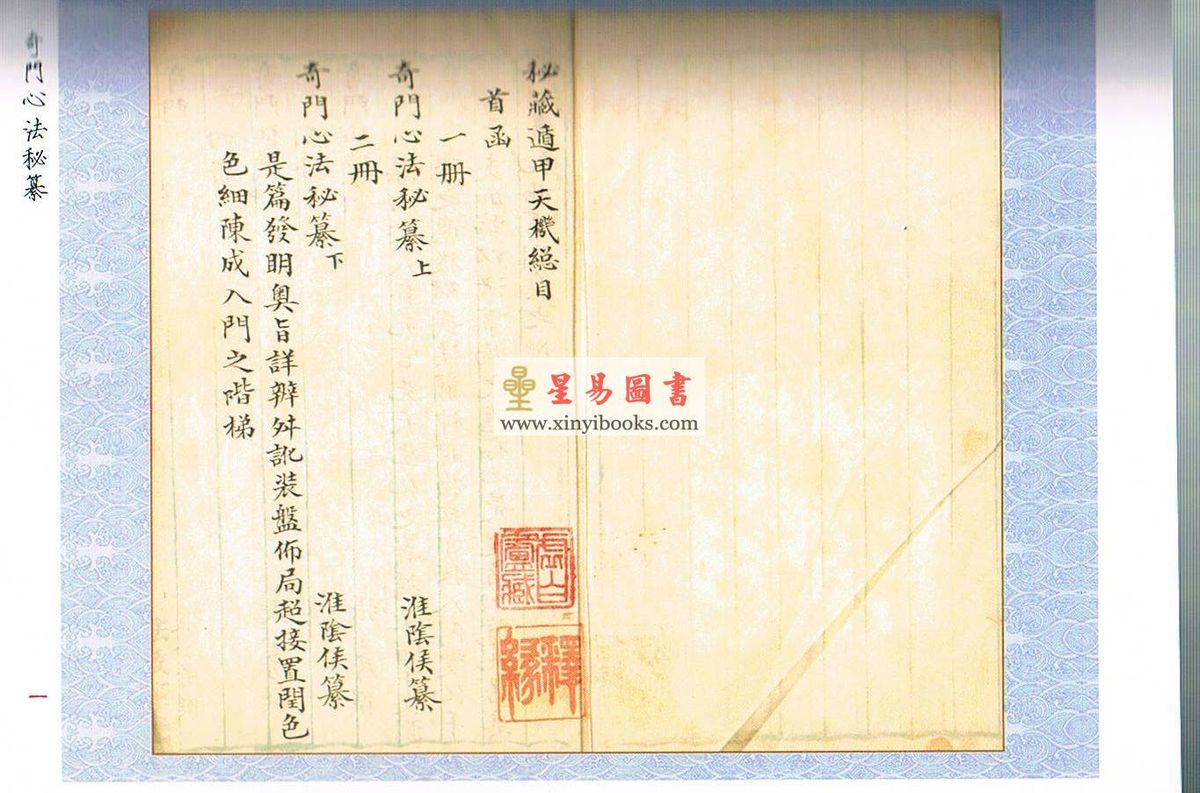 奇門心法秘纂
一
秘藏遁甲天機緫目
首函
一冊
奇門心法秘纂上
淮陰侯纂
二冊
奇門心法秘纂下
淮陰侯纂
是篇發明奧旨詳辨舛訛装盤佈局超接置閏色
色細陳成入門之階梯
長白
盧藏
釋
緣
星易圖書
www.xinyibooks.com